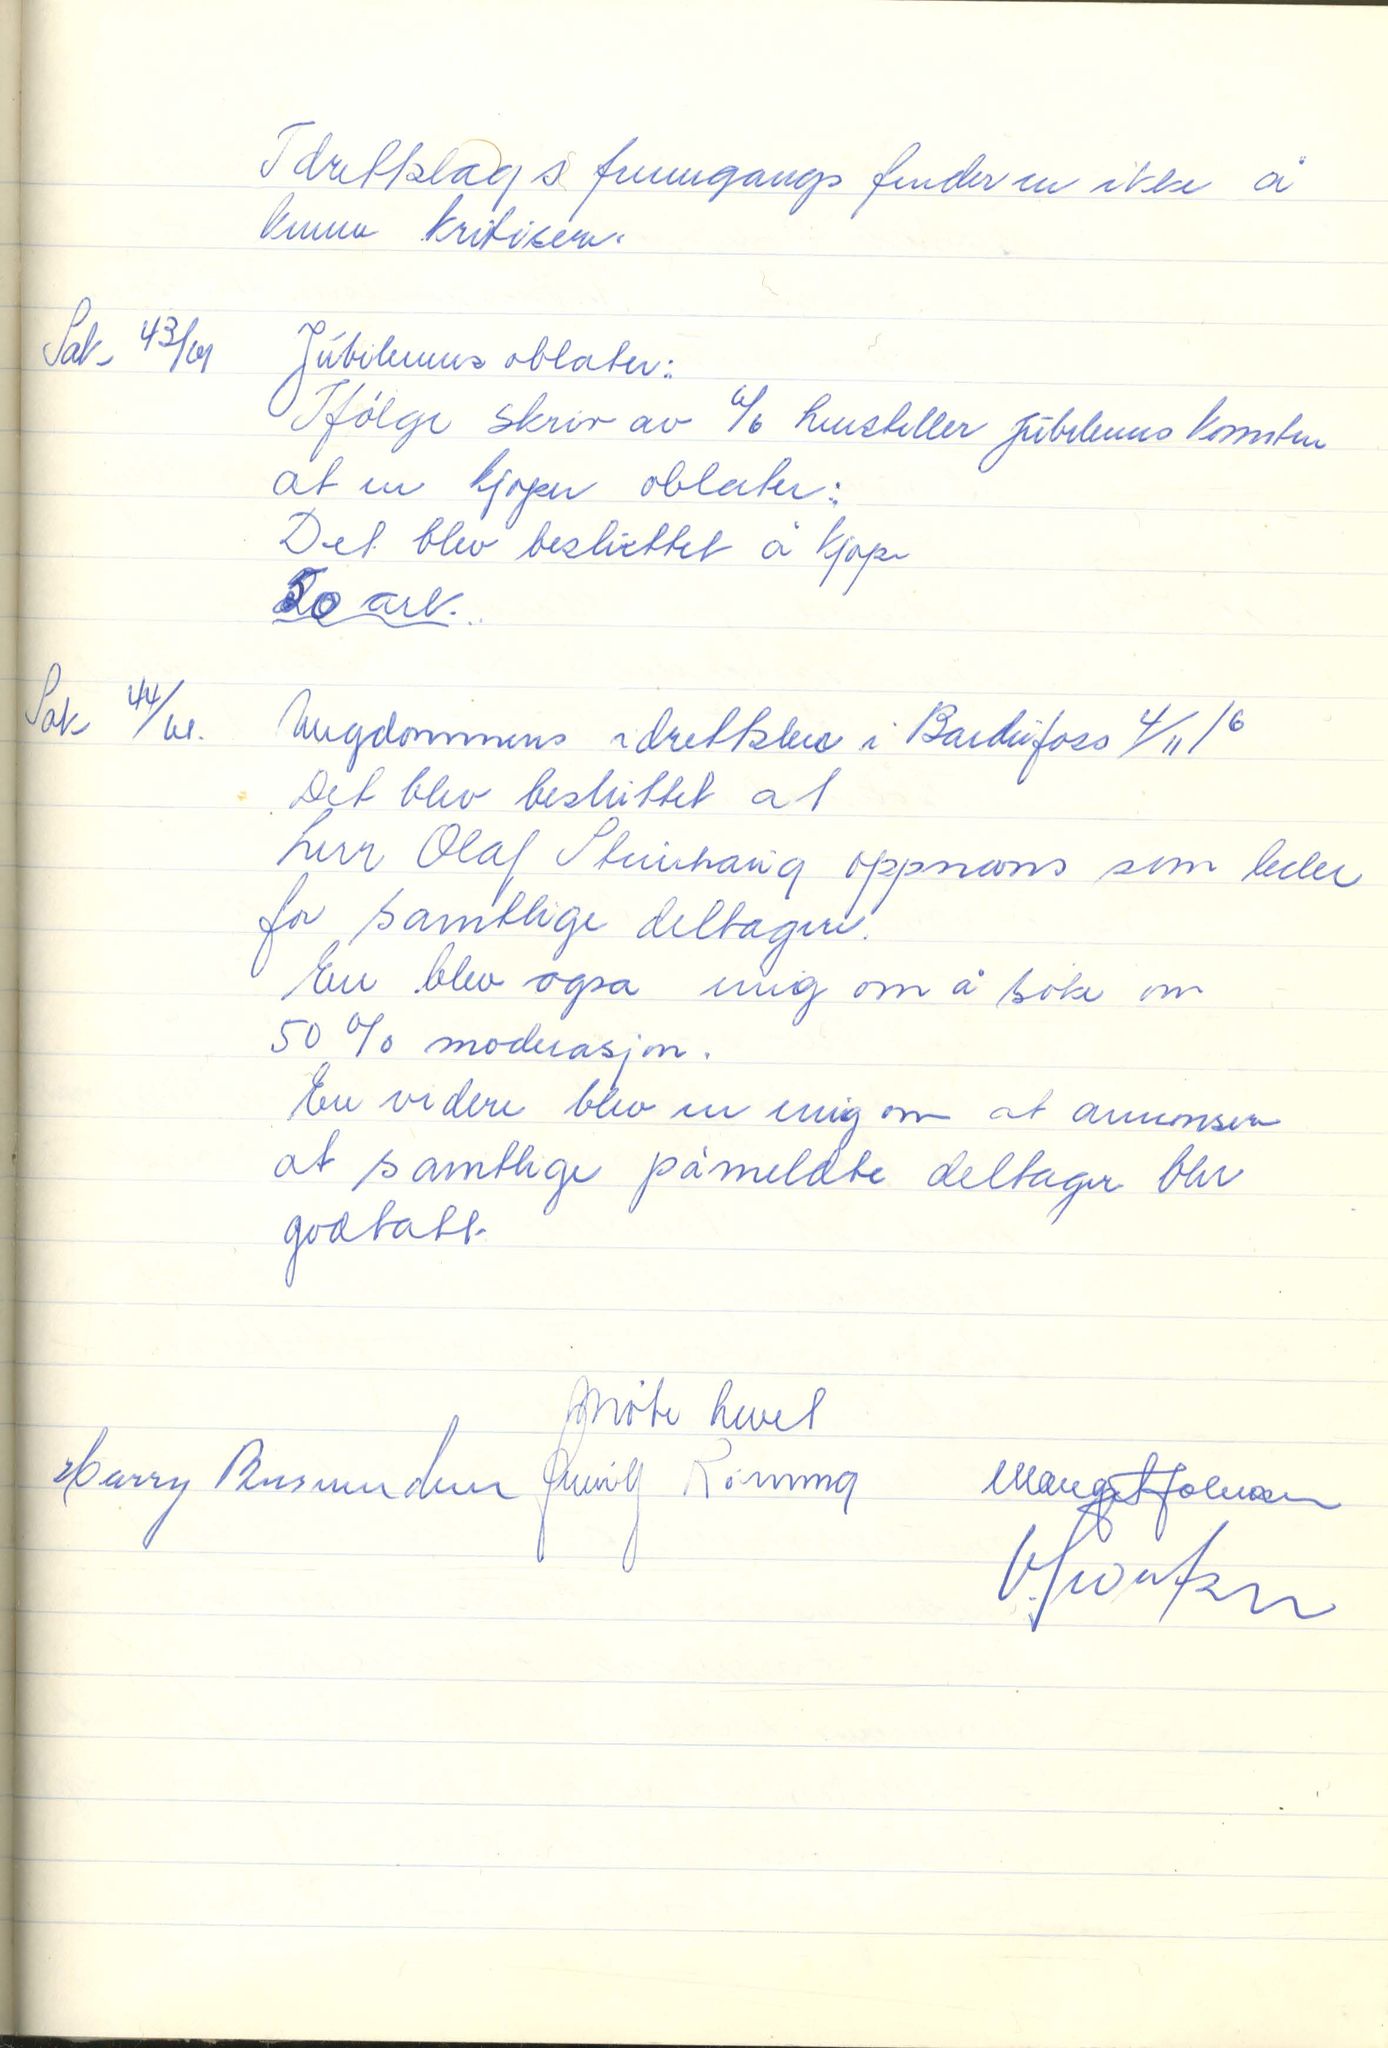 Idrettslags fremgangs finder en ikke å
kunne kritisere.
Sak 43/61 Jubileums oblater:
Ifølge skriv av 6/6 henstiller jubileums komiteen
at en kjøper oblater:
Det blev besluttet å kjøpe
50 ark.
Sak 44/61. Ungdommens idrettsleir i Bardufoss 4/11/6
Det blev besluttet at
herr Olaf Steinhaug oppnevns som leder
for samtlige deltagere.
En blev også enig om å søke om
50 % moderasjon.
En videre blev en enig om at annonsere
at samtlige påmeldte deltager blir
godtatt.
Møte hevet
Harry Rasmundsen Rønning Margit Johnsen